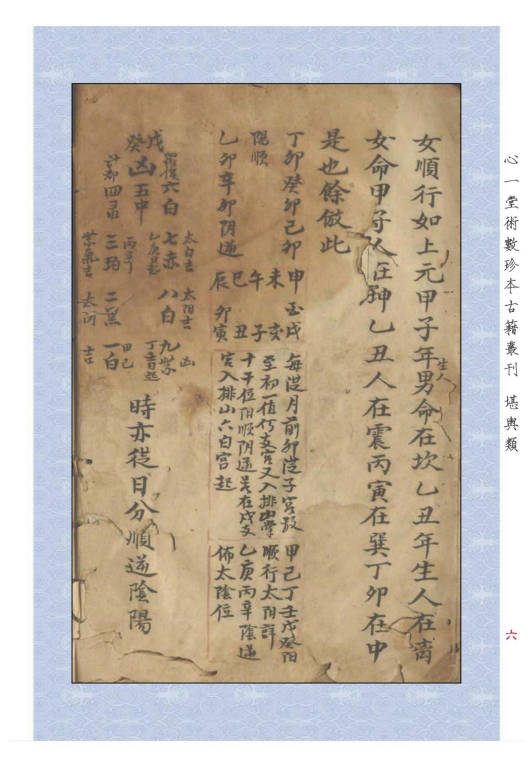 心一堂術數珍本古籍叢刊 堪輿類
六
女順行如上元甲子年男命在坎乙丑年生人在离
生人
女命甲子人在坤乙丑人在震丙寅在巽丁卯在中
是也餘倣此
丁卯癸卯己卯
陽順
乙卯辛卯阴逆
申 酉戌
未 亥
午 子
巳 丑
辰 卯寅
每從月前卯從子宮数
至初一值何支宮又入排山掌
十干位阳順阴逆
宮入排山六白宮起
甲己丁壬戊癸阳
順行太阳詳
乙庚丙辛陰逆
佈太陰位
戊
癸凶五中
羅睺六白
計都四录
太白吉
七赤
丙辛
三碧
紫氣吉
太阳吉
八白
二黑
太阴
凶
九紫
丁壬
甲己
一白
吉
時亦從日分順逆陰陽